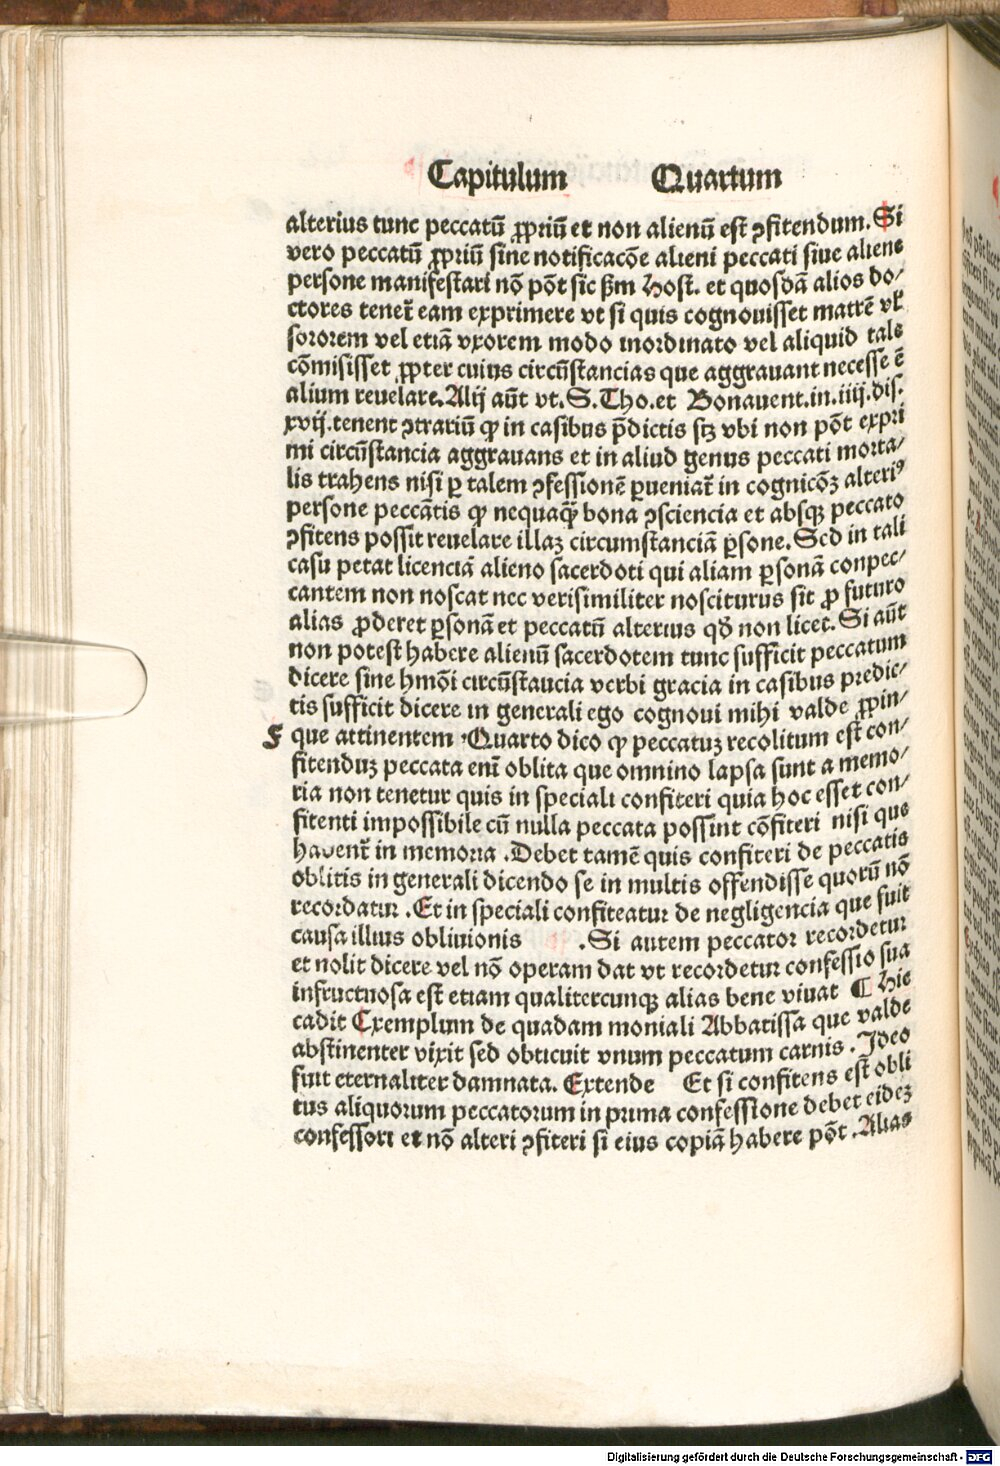 Capitulum Quartum
alterius tunc peccatū ꝓpriū et non alienū est ꝯfitendum. Si
vero peccatū ꝓpriū sine notificacōe alieni peccati siue aliene
persone manifestari nō pōt sic ẜm Host. et quosdā alios do⸗
ctores tenet̄ eam exprimere vt si quis cognouisset matrē vl̓
sororem vel etiā vxorem modo inordinato vel aliquid tale
cōmisisset ꝓpter cuius circūstancias que aggrauant necesse ē
alium reuelare. Alij aūt vt. S. Tho. et Bonauent. in. iiij. dis.
xvij. tenent ꝯtrariū ꝙ in casibus p̄dictis scꝫ vbi non pōt expri
mi circūstancia aggrauans et in aliud genus peccati morta⸗
lis trahens nisi ꝑ talem ꝯfessionē ꝑueniat̄ in cognicōꝫ alteriꝰ
persone peccātis ꝙ nequaꝙ̄ bona ꝯsciencia et absqꝫ peccato
ꝯfitens possit reuelare illaꝫ circumstanciā ꝑsone. Sed in tali
casu petat licenciā alieno sacerdoti qui aliam ꝑsonā conpec⸗
cantem non noscat nec verisimiliter nosciturus sit ꝓ futuro
alias ꝓderet ꝑsonā et peccatū alterius qđ non licet. Si aūt
non potest habere alienū sacerdotem tunc sufficit peccatum
dicere sine hmōi circūstancia verbi gracia in casibus predic⸗
tis sufficit dicere in generali ego cognoui mihi valde ꝓpin⸗
F que attinentem . Quarto dico ꝙ peccatuꝫ recolitum est con⸗
fitenduꝫ peccata eni̅ oblita que omnino lapsa sunt a memo⸗
ria non tenetur quis in speciali confiteri quia hoc esset con⸗
fitenti impossibile cū nulla peccata possint cōfiteri nisi que
habent̄ in memoria . Debet tamē quis confiteri de peccatis
oblitis in generali dicendo se in multis offendisse quorū nō
recordatur . Et in speciali confiteatur de negligencia que fuit
causa illius obliuionis . Si autem peccator recordetur
et nolit dicere vel nō operam dat vt recordetur confessio sua
infructuosa est etiam qualitercunqꝫ alias bene viuat ¶ Hic
cadit Exemplum de quadam moniali Abbatissa que valde
abstinenter vixit sed obticuit vnum peccatum carnis . Ideo
fuit eternaliter damnata. Extende Et si confitens est obli
tus aliquorum peccatorum in prima confessione debet eideꝫ
confessori et nō alteri ꝯfiteri si eius copiā habere pōt . Alias
Digitalisierung gefördert durch die Deutsche Forschungsgemeinschaft - DFG